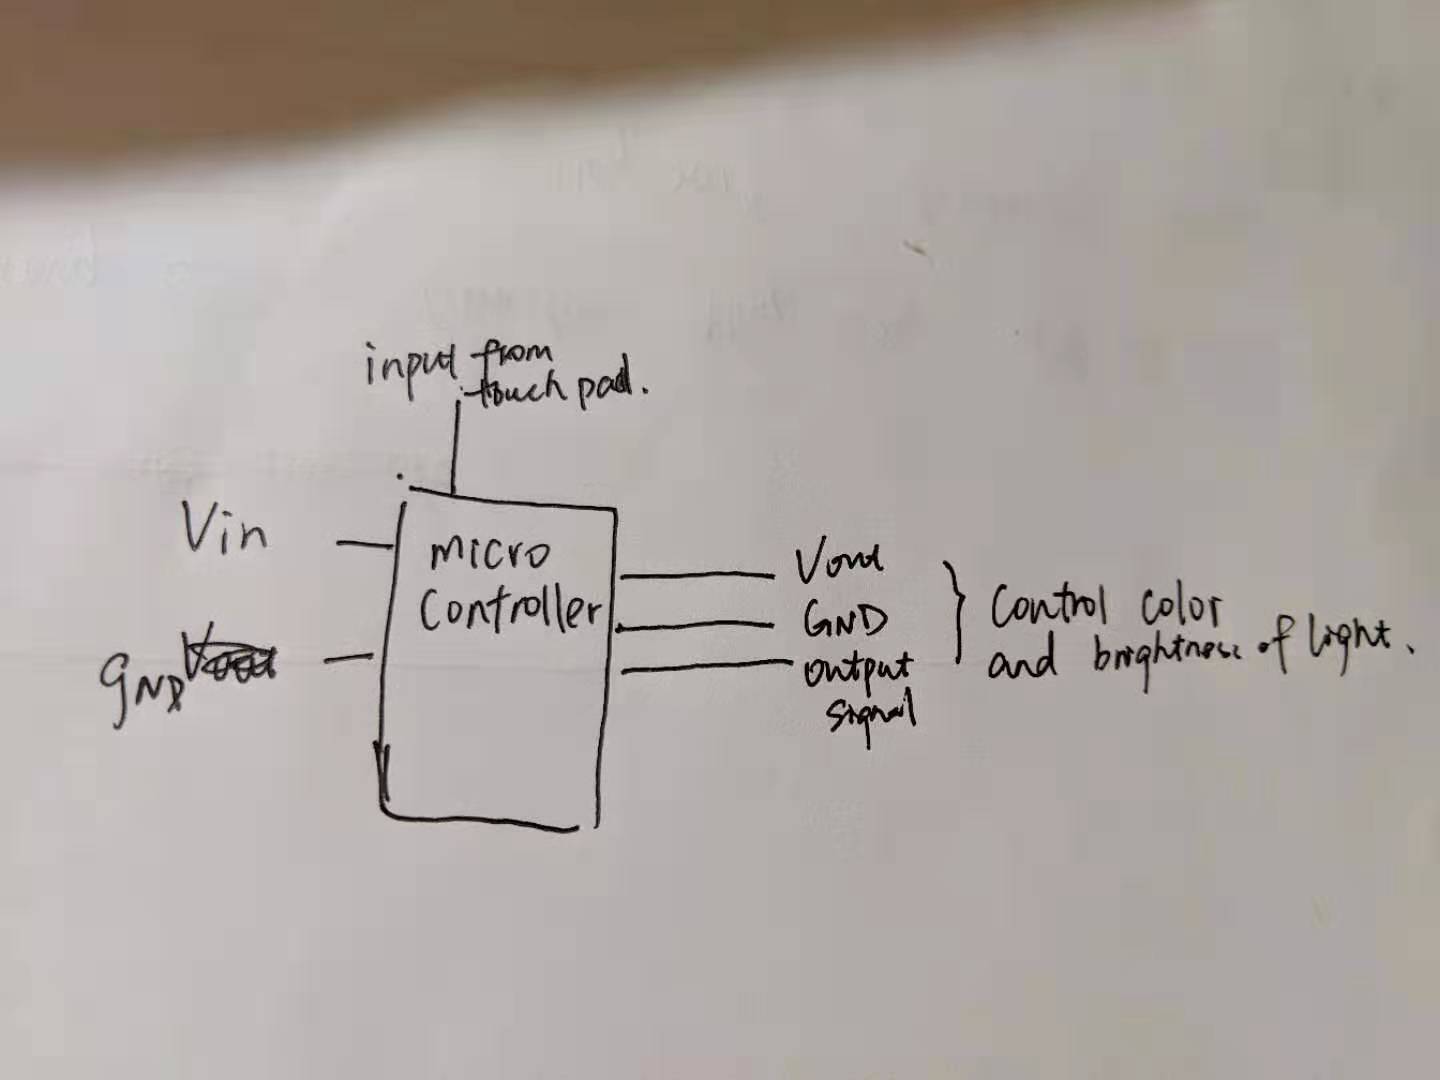 input from
touch pad.
Vin
micro
controller
GND
Vout
GND
output
signal
Control color
and brightness of light.